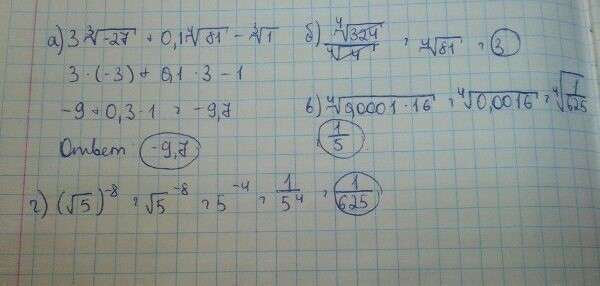 а) 3 ∛-27 + 0,1 ∜81 - ∛1
3 · (-3) + 0,1 · 3 - 1
-9 + 0,3 - 1 = -9,7
Ответ: -9,7
б) ∜324 / ∜4 = ∜81 = 3
в) ∜0,0001 · 16 = ∜0,0016 = ∜1/625
= 1/5
г) (√5)^-8 = √5^-8 = 5^-4 = 1/5^4 = 1/625